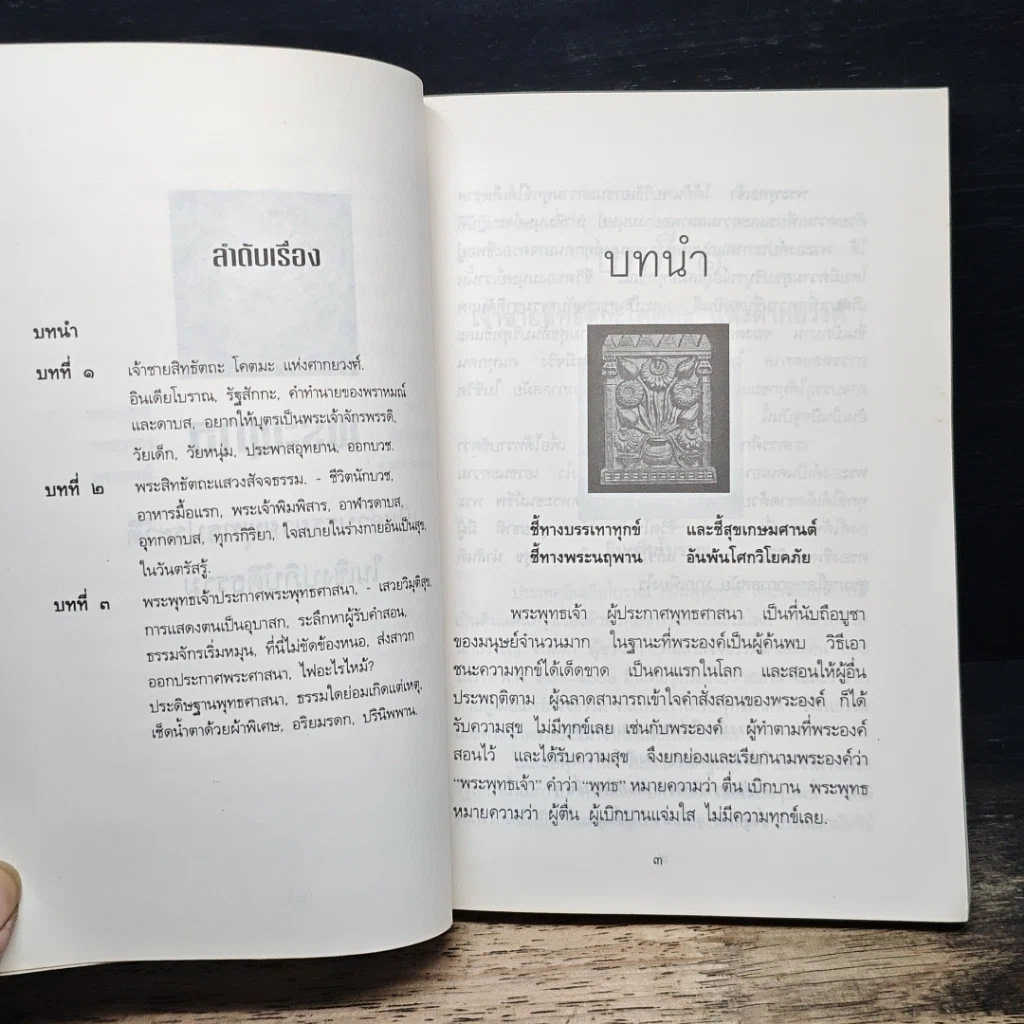 ลำดับเรื่อง
บทนำ
บทที่ ๑ เจ้าชายสิทธัตถะ โคตมะ แห่งศากยวงศ์.
อินเดียโบราณ, รัฐสักกะ, คำทำนายของพราหมณ์
และดาบส, อยากให้บุตรเป็นพระเจ้าจักรพรรดิ,
วัยเด็ก, วัยหนุ่ม, ประพาสอุทยาน, ออกบวช.
บทที่ ๒ พระสิทธัตถะแสวงสัจจธรรม. - ชีวิตนักบวช,
อาหารมื้อแรก, พระเจ้าพิมพิสาร, อาฬารดาบส,
อุทกดาบส, ทุกรกิริยา, ใจสบายในร่างกายอันเป็นสุข,
ในวันตรัสรู้.
บทที่ ๓ พระพุทธเจ้าประกาศพระพุทธศาสนา, - เสวยวิมุติสุข,
การแสดงตนเป็นอุบาสก, ระลึกหาผู้รับคำสอน,
ธรรมจักรเริ่มหมุน, ที่นี่ไม่ขัดข้องหนอ, ส่งสาวก
ออกประกาศพระศาสนา, ไฟอะไรไหม้?
ประดิษฐานพุทธศาสนา, ธรรมใดย่อมเกิดแต่เหตุ,
เช็ดน้ำตาด้วยผ้าพิเศษ, อริยมรดก, ปรินิพพาน.
บทนำ
ชี้ทางบรรเทาทุกข์ และชี้สุขเกษมศานต์
ชี้ทางพระนฤพาน อันพ้นโศกวิโยคภัย
พระพุทธเจ้า ผู้ประกาศพุทธศาสนา เป็นที่นับถือบูชา
ของมนุษย์จำนวนมาก ในฐานะที่พระองค์เป็นผู้ค้นพบ วิธีเอา
ชนะความทุกข์ได้เด็ดขาด เป็นคนแรกในโลก และสอนให้ผู้อื่น
ประพฤติตาม ผู้ฉลาดสามารถเข้าใจคำสั่งสอนของพระองค์ ก็ได้
รับความสุข ไม่มีทุกข์เลย เช่นกับพระองค์ ผู้ทำตามที่พระองค์
สอนไว้ และได้รับความสุข จึงยกย่องและเรียกนามพระองค์ว่า
“พระพุทธเจ้า” คำว่า “พุทธ” หมายความว่า ตื่น เบิกบาน พระพุทธ
หมายความว่า ผู้ตื่น ผู้เบิกบานแจ่มใส ไม่มีความทุกข์เลย.
๓